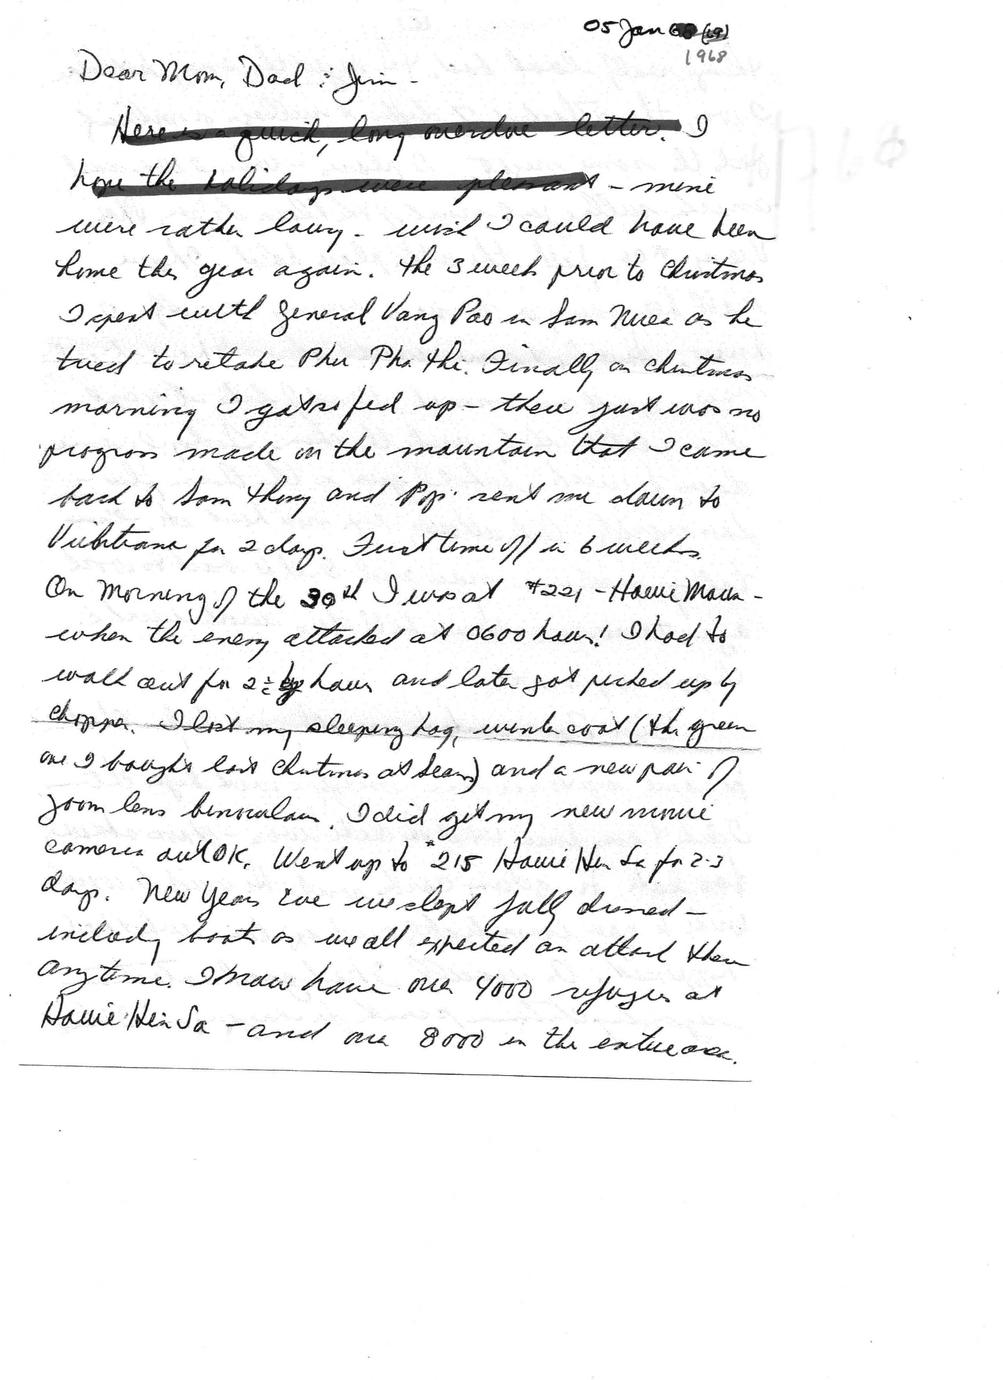 05 Jan 68 (69)
1968
Dear Mom, Dad & Jim -
Here is a quick, long overdue letter. I
hope the holidays were pleasant - mine
were rather lousy - wish I could have been
home this year again. The 3 week prior to Christmas
I spent with General Vang Pao in Sam Nuea as he
tried to retake Phu Pha thi. Finally on Christmas
morning I got so fed up - there just was no
progress made on the mountain that I came
back to Sam Thong and Pop sent me down to
Vientiane for 2 days. First time off in 6 weeks.
On Morning of the 30th I was at #221 - Houei Moun -
when the enemy attacked at 0600 hours! I had to
walk out for 2 hours and later got picked up by
chopper. I lost my sleeping bag, winter coat (the green
one I bought last Christmas at Sears) and a new pair of
zoom lens binoculars. I did get my new movie
camera out OK. Went up to #215 Houei Hin Sa for 2-3
days. New Years Eve we slept fully dressed -
including boots as we all expected an attack there
anytime. I now have over 4000 refugees at
Houei Hin Sa - and over 8000 in the entire area.